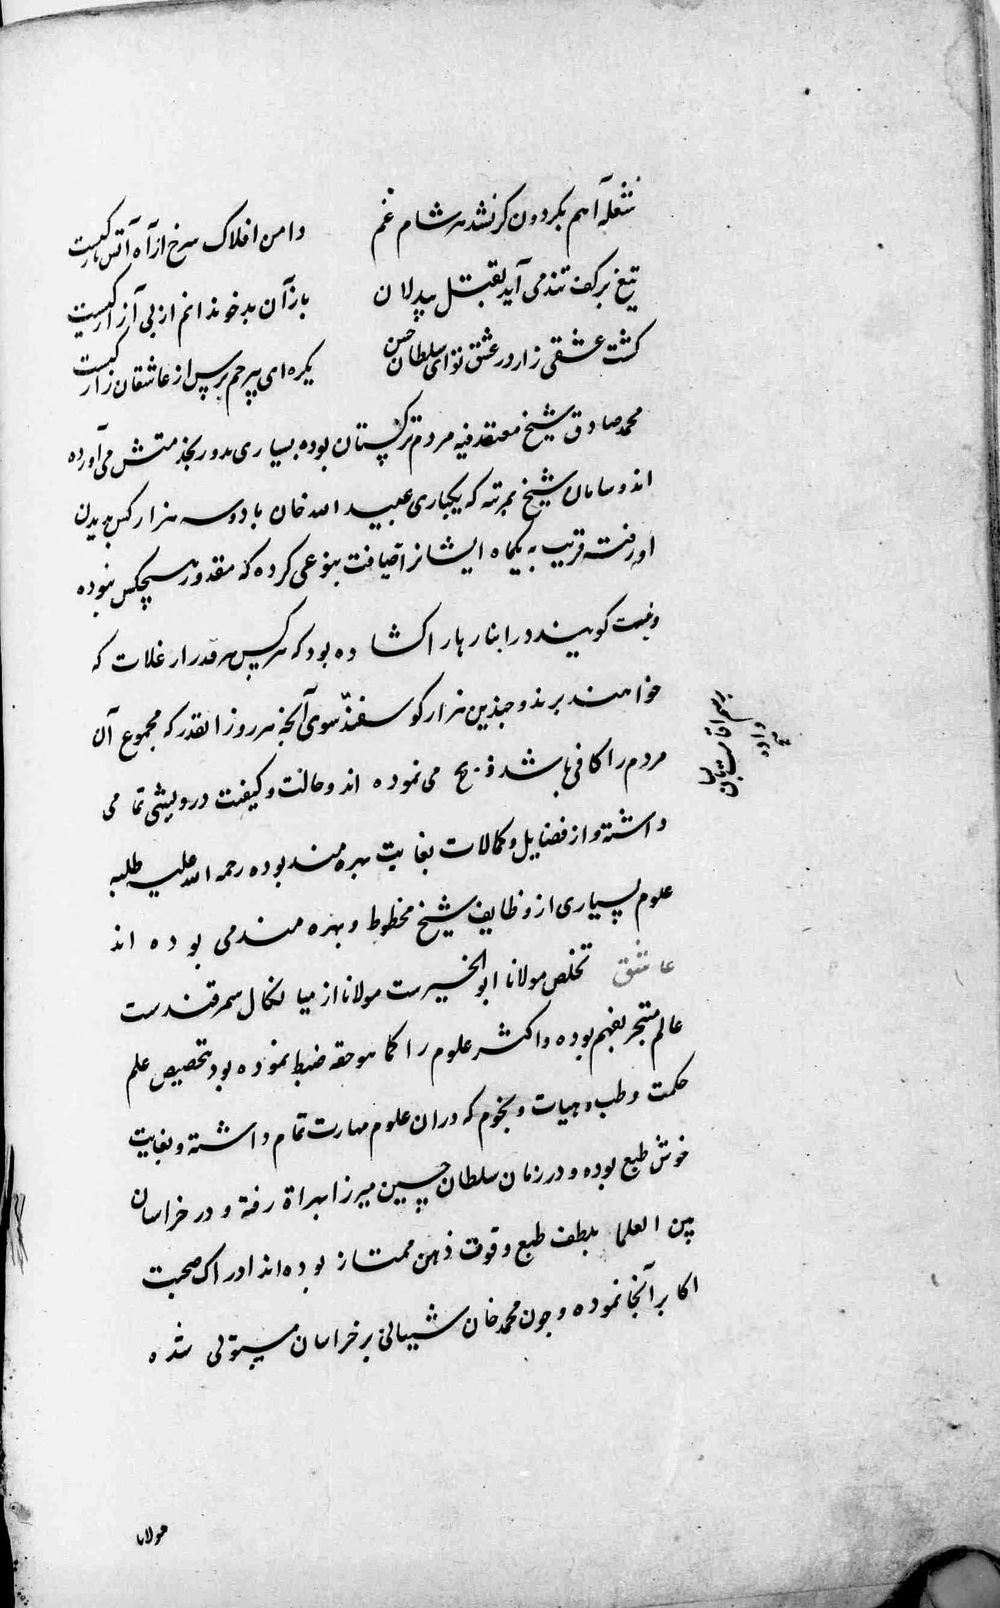 شعله آهم بکردون کرنشد هر شام غم دامن افلاک سرخ از آه آتش بار کیست
تیغ بر کف تند می آید بقتل بیدلان باز آن بدخو ندانم از پی آزار کیست
کشت عشقی زار در عشق تو ای سلطان حسن یکره ای بیرحم پرس از عاشقان زار کیست
محمد صادق شیخ معتقد فیه مردم ترکستان بوده بسیاری بدو بخدمتش می آورده
اند و سامان شیخ بمرتبه که یکباری عبید الله خان با دو سه هزار کس بدیدن
او رفته قریب به یکماه ایشانرا ضیافت بنوعی کرده که مقدور هیچکس نبوده
و کویند در انبارها را کشاده بود که هر کس هر قدر از غلات که
خواهند برند و چندین هزار کوسفند سوی آنچه هر روز انقدر که مجموع آن
مردم را کافی باشد ذبح می نموده اند و حالت و کیفیت درویشی تمامی
داشته و از فضایل و کمالات بغایت بهره مند بوده رحمه الله علیه طلبه
علوم بسیاری از وظایف شیخ محظوظ و بهره مند می بوده اند
عاشق تخلص مولانا ابو الخیرست مولانا از میانکال سمرقندست
عالم متبحر بفهم بوده و اکثر علوم را کما هو حقه ضبط نموده بود تخصیص علم
حکمت و طب و هیات و نجوم که دران علوم مهارت تمام داشته و بغایت
خوش طبع بوده و در زمان سلطان حسین میرزا بهراة رفته و در خراسان
بین العلما بلطف طبع و قوت ذهن ممتاز بوده اند ادراک صحبت
اکابر آنجا نموده و چون محمد خان شیبانی بر خراسان مستولی شده
مولانا